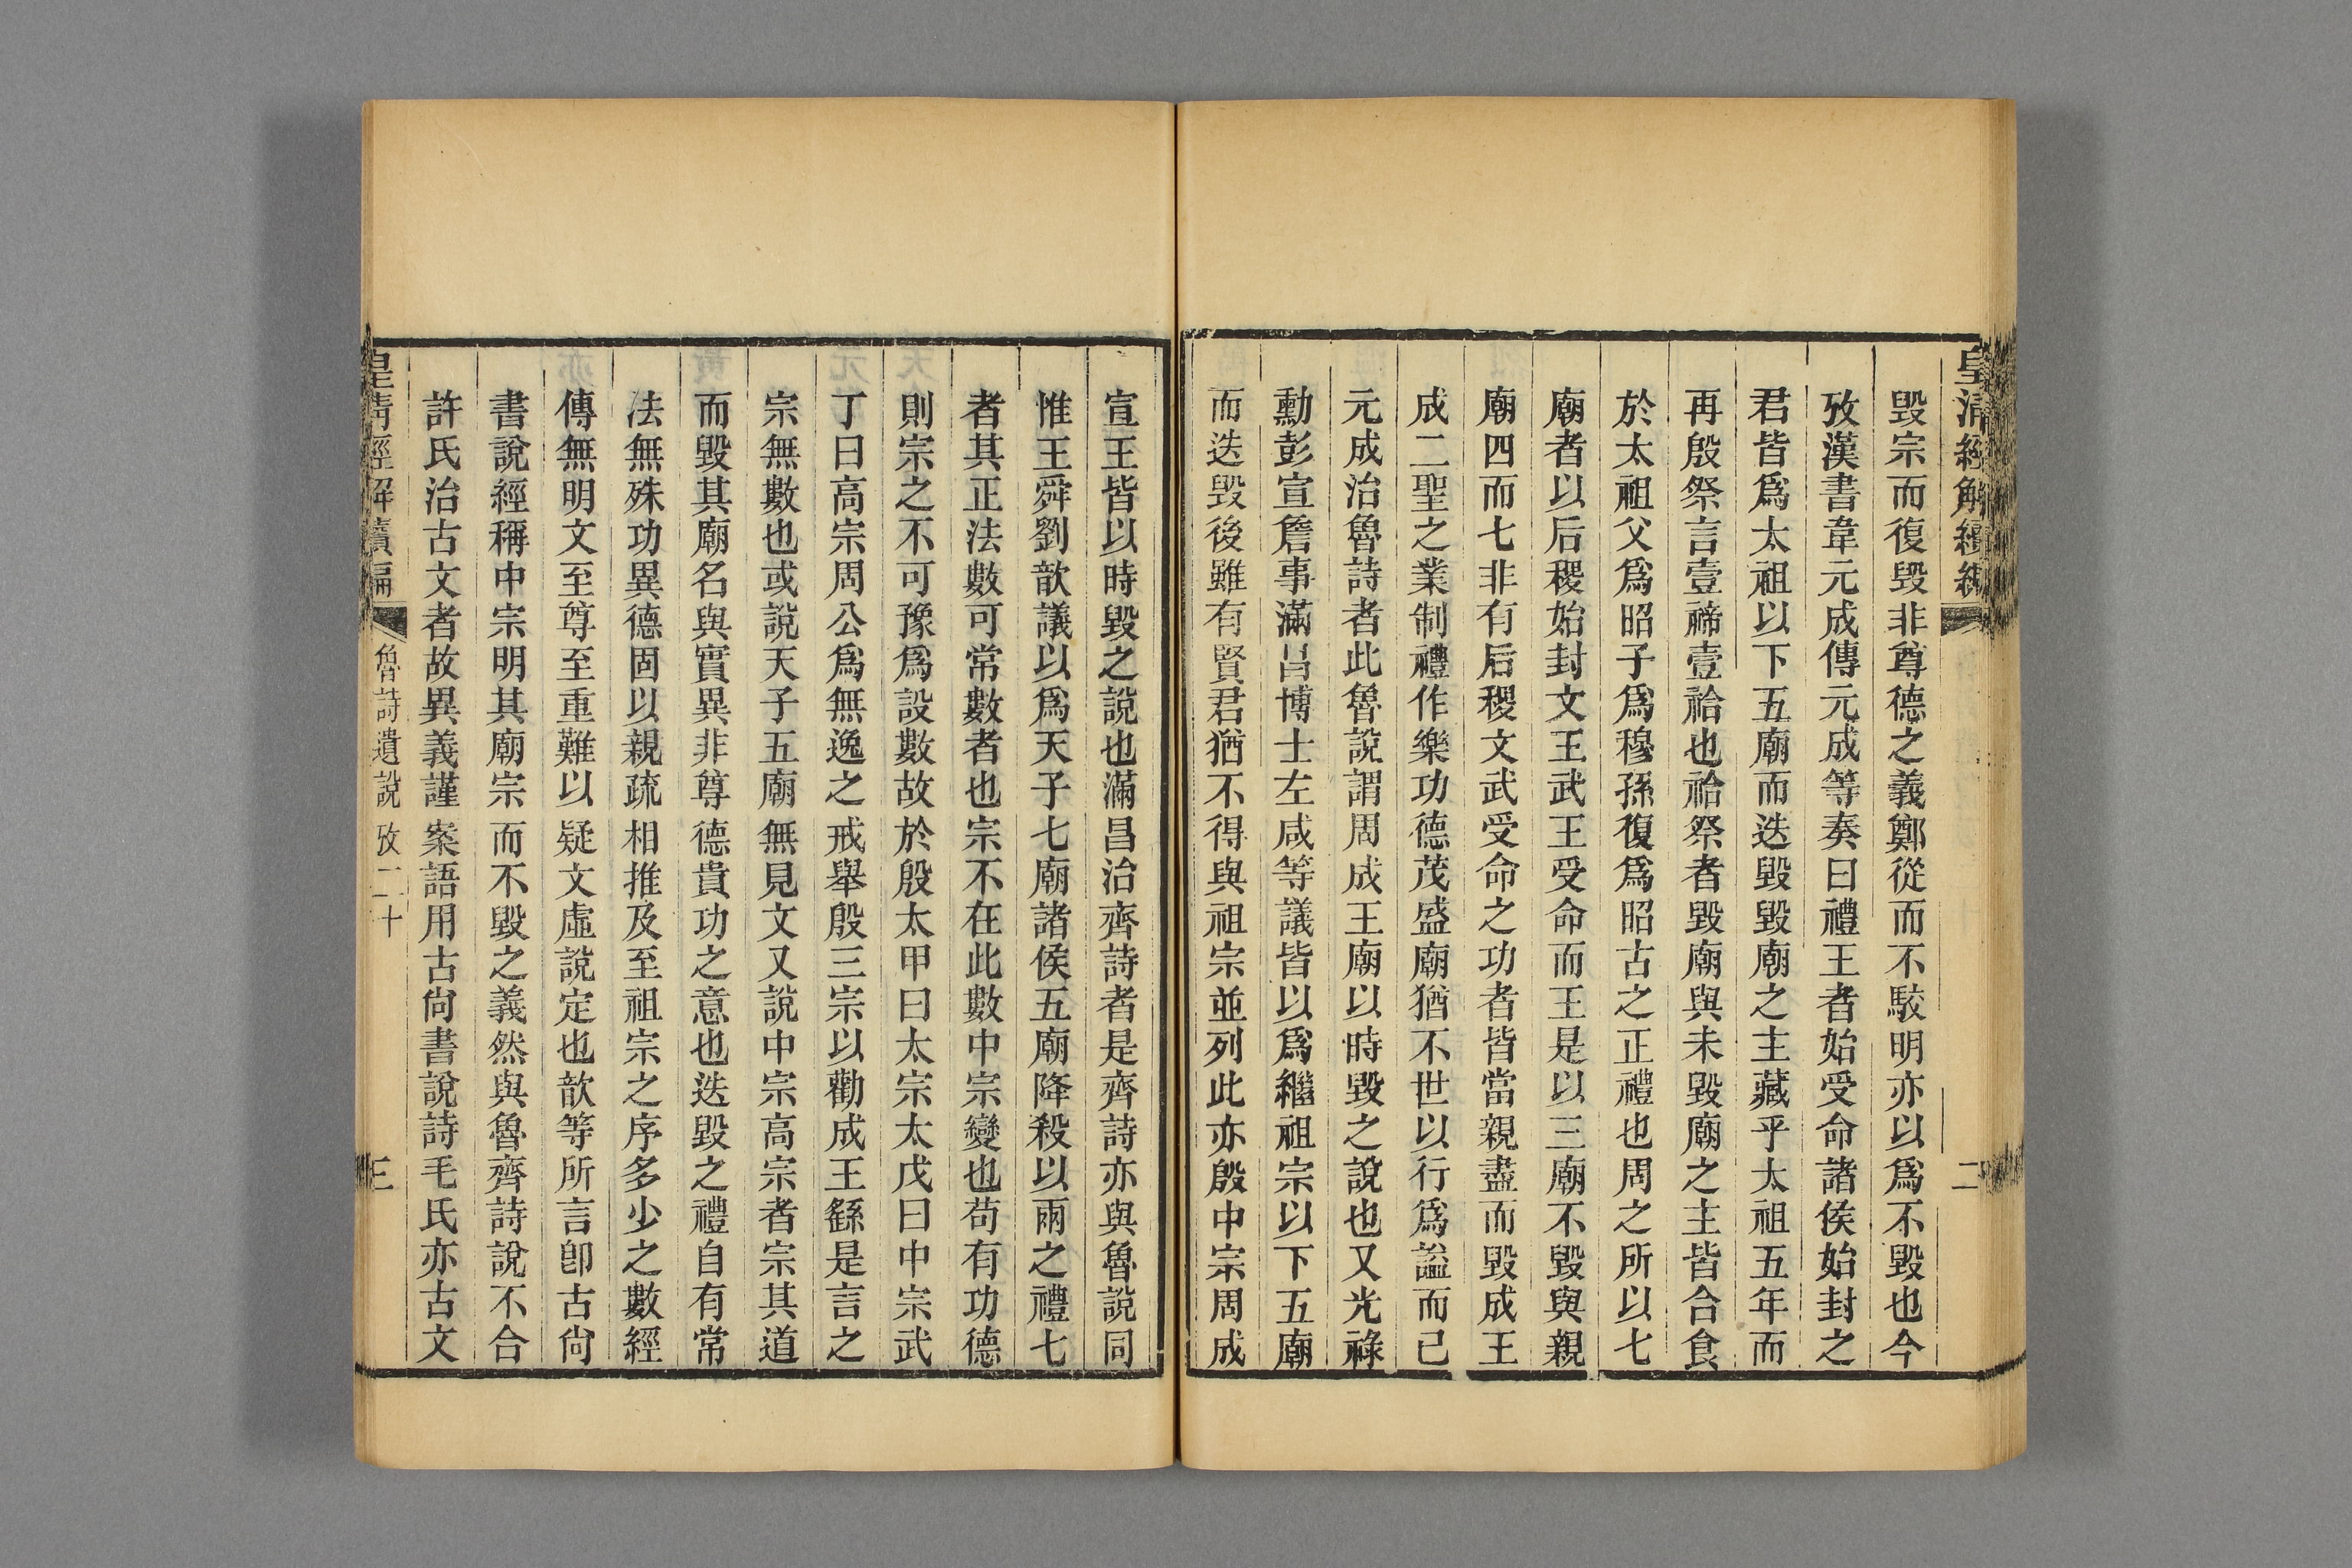 皇清經解續編
二
毀宗而復毀非尊德之義鄭從而不駁明亦以爲不毀也今
攷漢書韋元成傳元成等奏曰禮王者始受命諸侯始封之
君皆爲太祖以下五廟而迭毀毀廟之主藏乎太祖五年而
再殷祭言壹禘壹祫也祫祭者毀廟與未毀廟之主皆合食
於太祖父爲昭子爲穆孫復爲昭古之正禮也周之所以七
廟者以后稷始封文王武王受命而王是以三廟不毀與親
廟四而七非有后稷文武受命之功者皆當親盡而毀成王
成二聖之業制禮作樂功德茂盛廟猶不世以行爲謚而已
元成治魯詩者此魯說謂周成王廟以時毀之說也又光祿
勳彭宣詹事滿昌博士左咸等議皆以爲繼祖宗以下五廟
而迭毀後雖有賢君猶不得與祖宗並列此亦殷中宗周成
宣王皆以時毀之說也滿昌治齊詩者是齊詩亦與魯說同
惟王舜劉歆議以爲天子七廟諸侯五廟降殺以兩之禮七
者其正法數可常數者也宗不在此數中宗變也苟有功德
則宗之不可豫爲設數故於殷太甲曰太宗太戊曰中宗武
丁曰高宗周公爲無逸之戒舉殷三宗以勸成王繇是言之
宗無數也或說天子五廟無見文又說中宗高宗者宗其道
而毀其廟名與實異非尊德貴功之意也迭毀之禮自有常
法無殊功異德固以親疏相推及至祖宗之序多少之數經
傳無明文至尊至重難以疑文虛說定也歆等所言卽古尙
書說經稱中宗明其廟宗而不毀之義然與魯齊詩說不合
許氏治古文者故異義謹案語用古尙書說詩毛氏亦古文
皇清經解續編
魯詩遺說攷二十
三